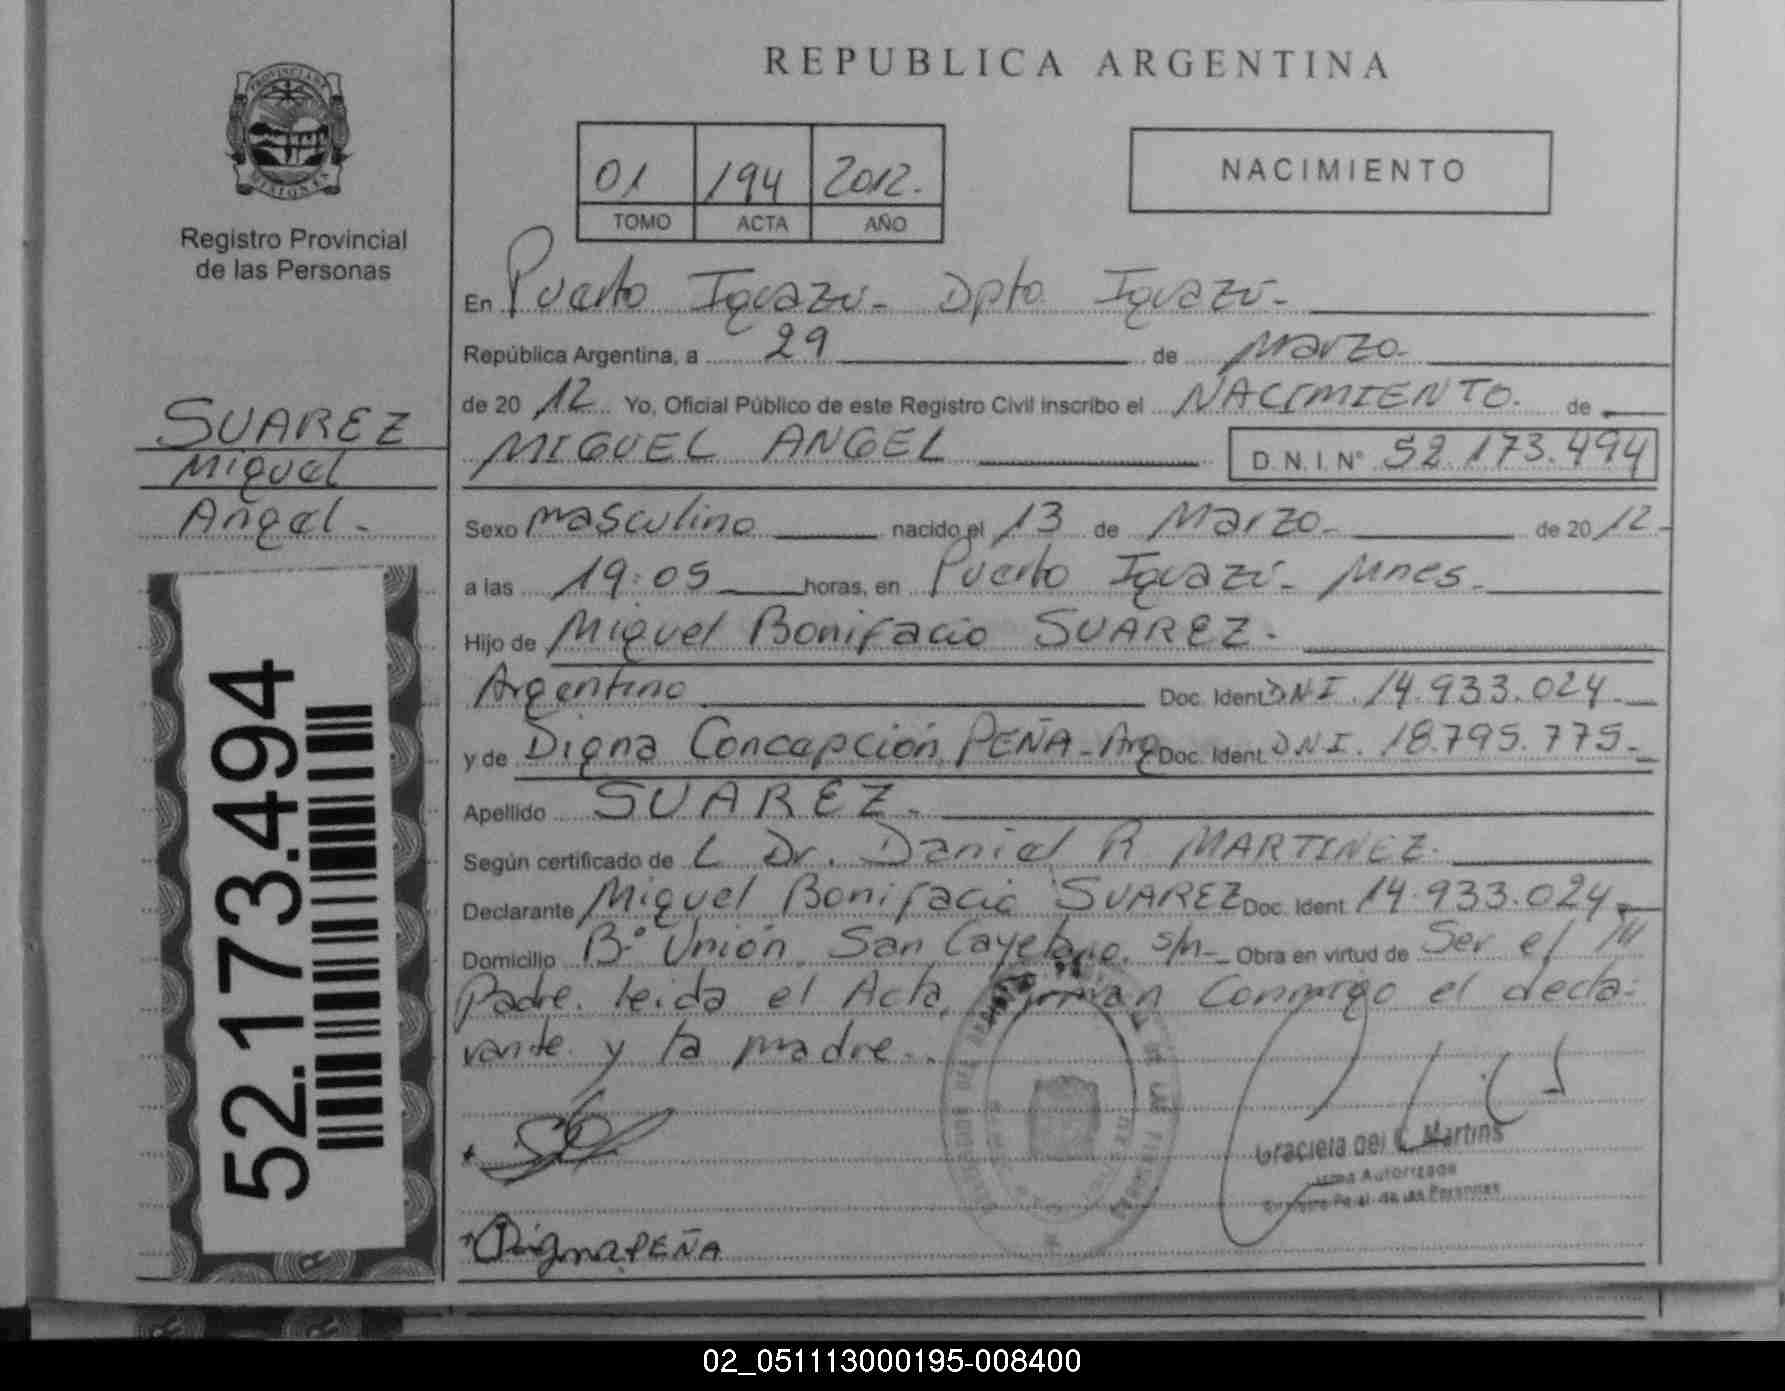 REPUBLICA ARGENTINA
PROVINCIA DE
MISIONES
Registro Provincial
de las Personas
01 194 2012.
TOMO ACTA AÑO
NACIMIENTO
En Puerto Iguazú- Dpto Iguazú-
República Argentina, a 29 de Marzo-
de 20 12 Yo, Oficial Público de este Registro Civil inscribo el NACIMIENTO. de
MIGUEL ANGEL D.N.I.N° 52.173.494
SUAREZ
Miguel
Angel-
Sexo masculino nacido el 13 de Marzo- de 20 12-
a las 19:05 horas, en Puerto Iguazú- Mnes.
Hijo de Miguel Bonifacio SUAREZ.
Argentino Doc. Ident. DNI. 14.933.024
y de Digna Concepción PEÑA-Arg Doc. Ident. DNI. 18.795.775-
Apellido SUAREZ-
Según certificado de L Dr. Daniel R MARTINEZ-
Declarante Miguel Bonifacio SUAREZ Doc. Ident. 14.933.024
Domicilio B° Unión San Cayetano s/n- Obra en virtud de Ser el
Padre. leida el Acta, Firman Conmigo el decla-
rante y la madre.
52.173.494
Graciela del C. Martins
Firma Autorizada
Digna PEÑA
02_051113000195-008400